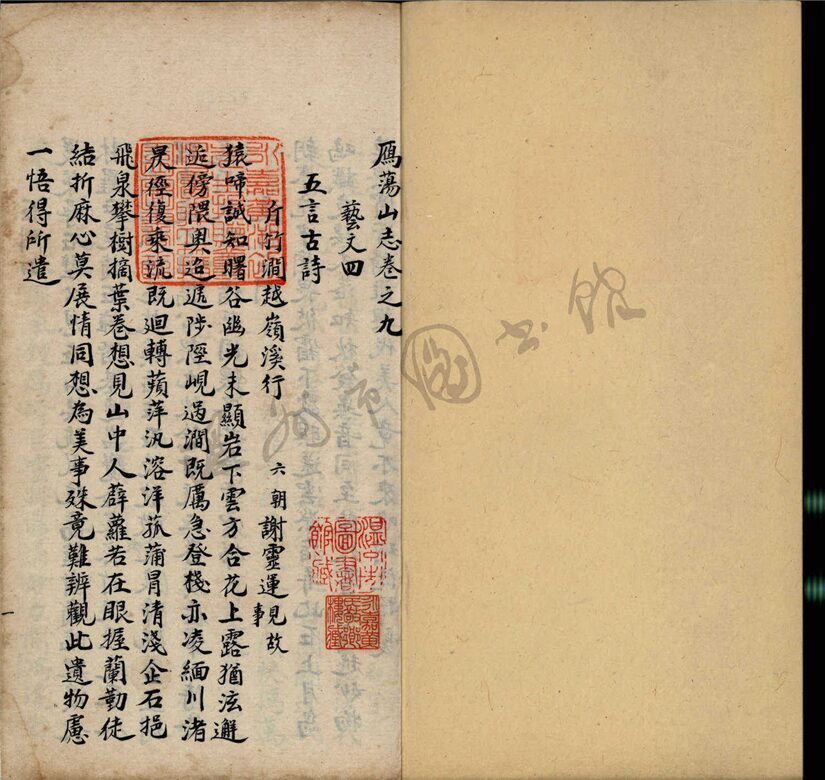 鴈蕩山志卷之九
藝文四
五言古詩
斤竹澗越嶺溪行 六朝謝靈運見故事
猿啼誠知曙谷幽光未顯岩下雲方合花上露猶泫邂
逅傍隈奧迢遞陟陘峴過澗既厲急登棧亦凌緬川渚
逕復乘流既迴轉蘋萍汎溶洋菰蒲冒清淺企石挹
飛泉攀樹摘葉卷想見山中人薜蘿若在眼握蘭勤徒
結折麻心莫展情同想為美事殊竟難辨觀此遺物慮
一悟得所遣
溫州市圖書館
溫州市圖書館藏